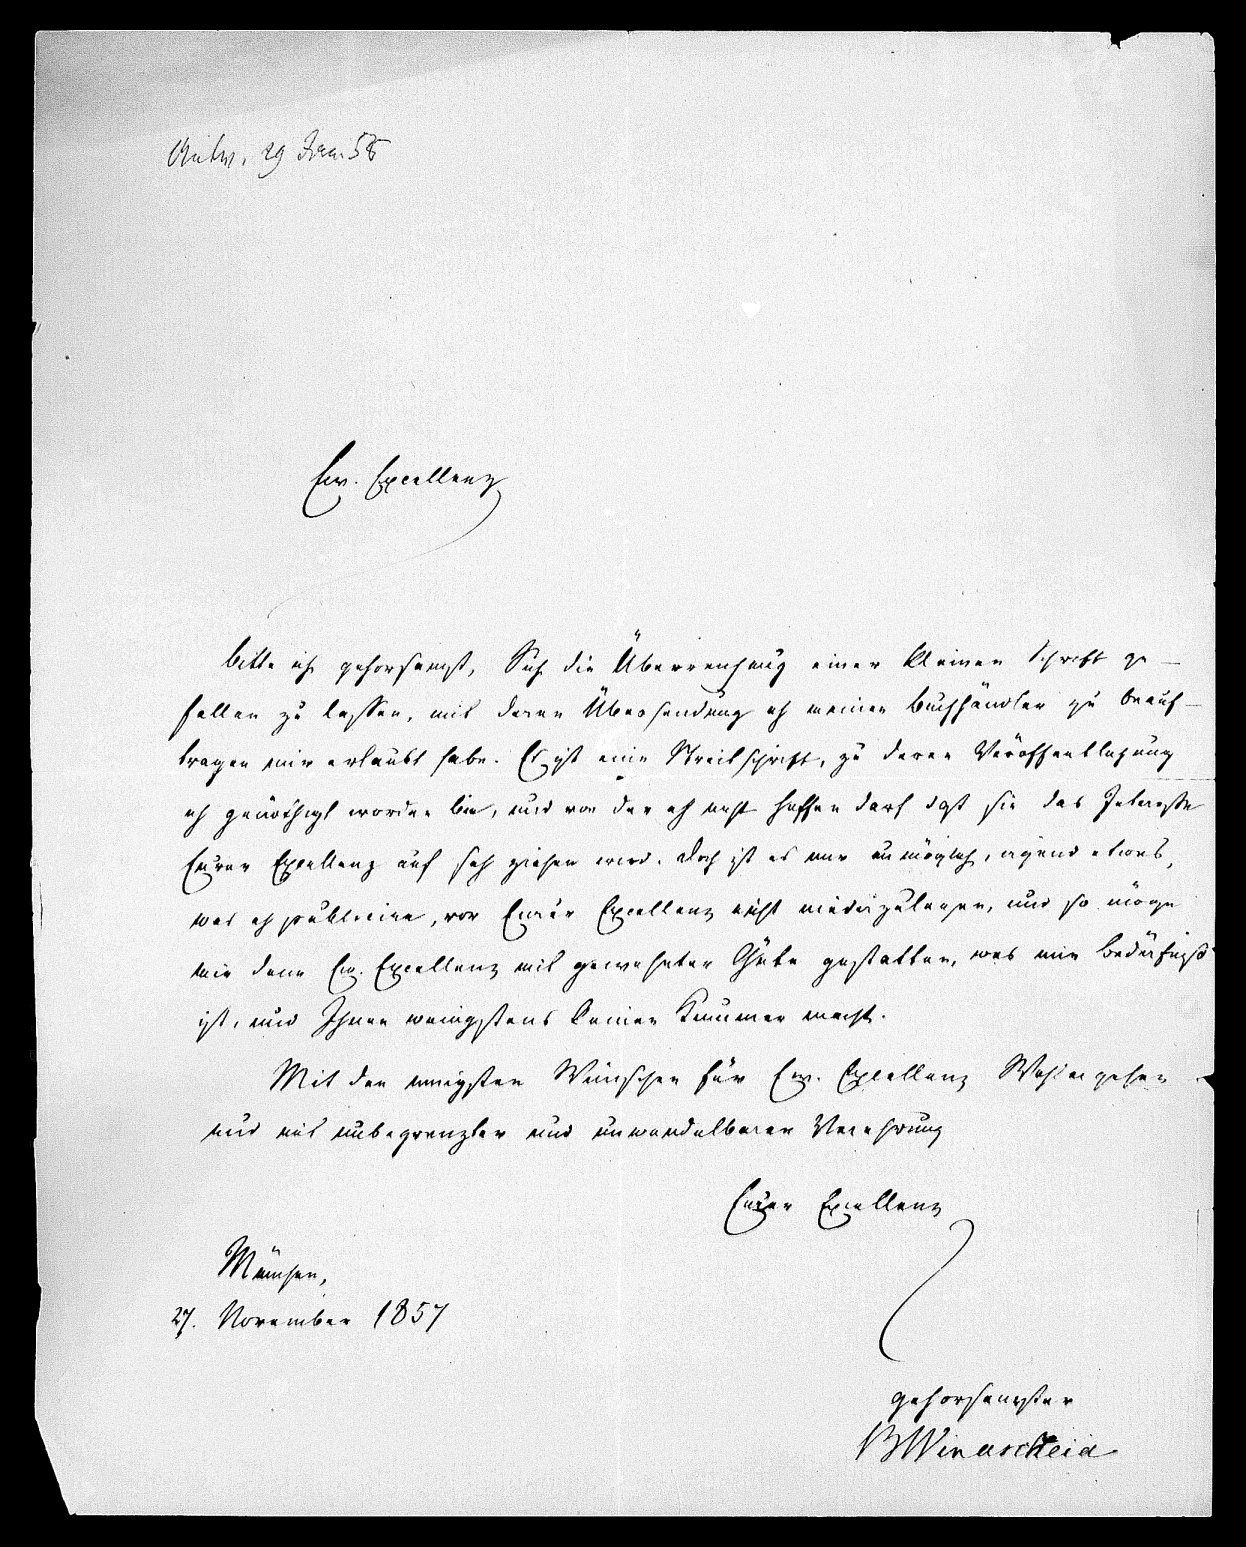 Antw. 29 Jan. 58
Ew. Excellenz
bitte ich gehorsamst, Sich die Überreichung einer kleinen Schrift ge-
fallen zu lassen, mit deren Übersendung ich meinen Buchhändler zu beauf-
tragen mir erlaubt habe. Es ist eine Streitschrift, zu deren Veröffentlichung
ich genöthigt worden bin, und von der ich nicht hoffen darf daß sie das Interesse
Eurer Excellenz auf sich ziehen wird. Doch ist es mir unmöglich, irgend etwas,
was ich publicire, vor Eurer Excellenz nicht niederzulegen, und so möge
mir denn Ew. Excellenz mit gewohnter Güte gestatten, was mir Bedürfniß
ist, und Ihnen wenigstens keinen Kummer macht.
Mit den innigsten Wünschen für Ew. Excellenz Wohlergehen
und mit unbegrenzter und unwandelbarer Verehrung
Eurer Excellenz
München,
27. November 1857
gehorsamster
BWindscheid